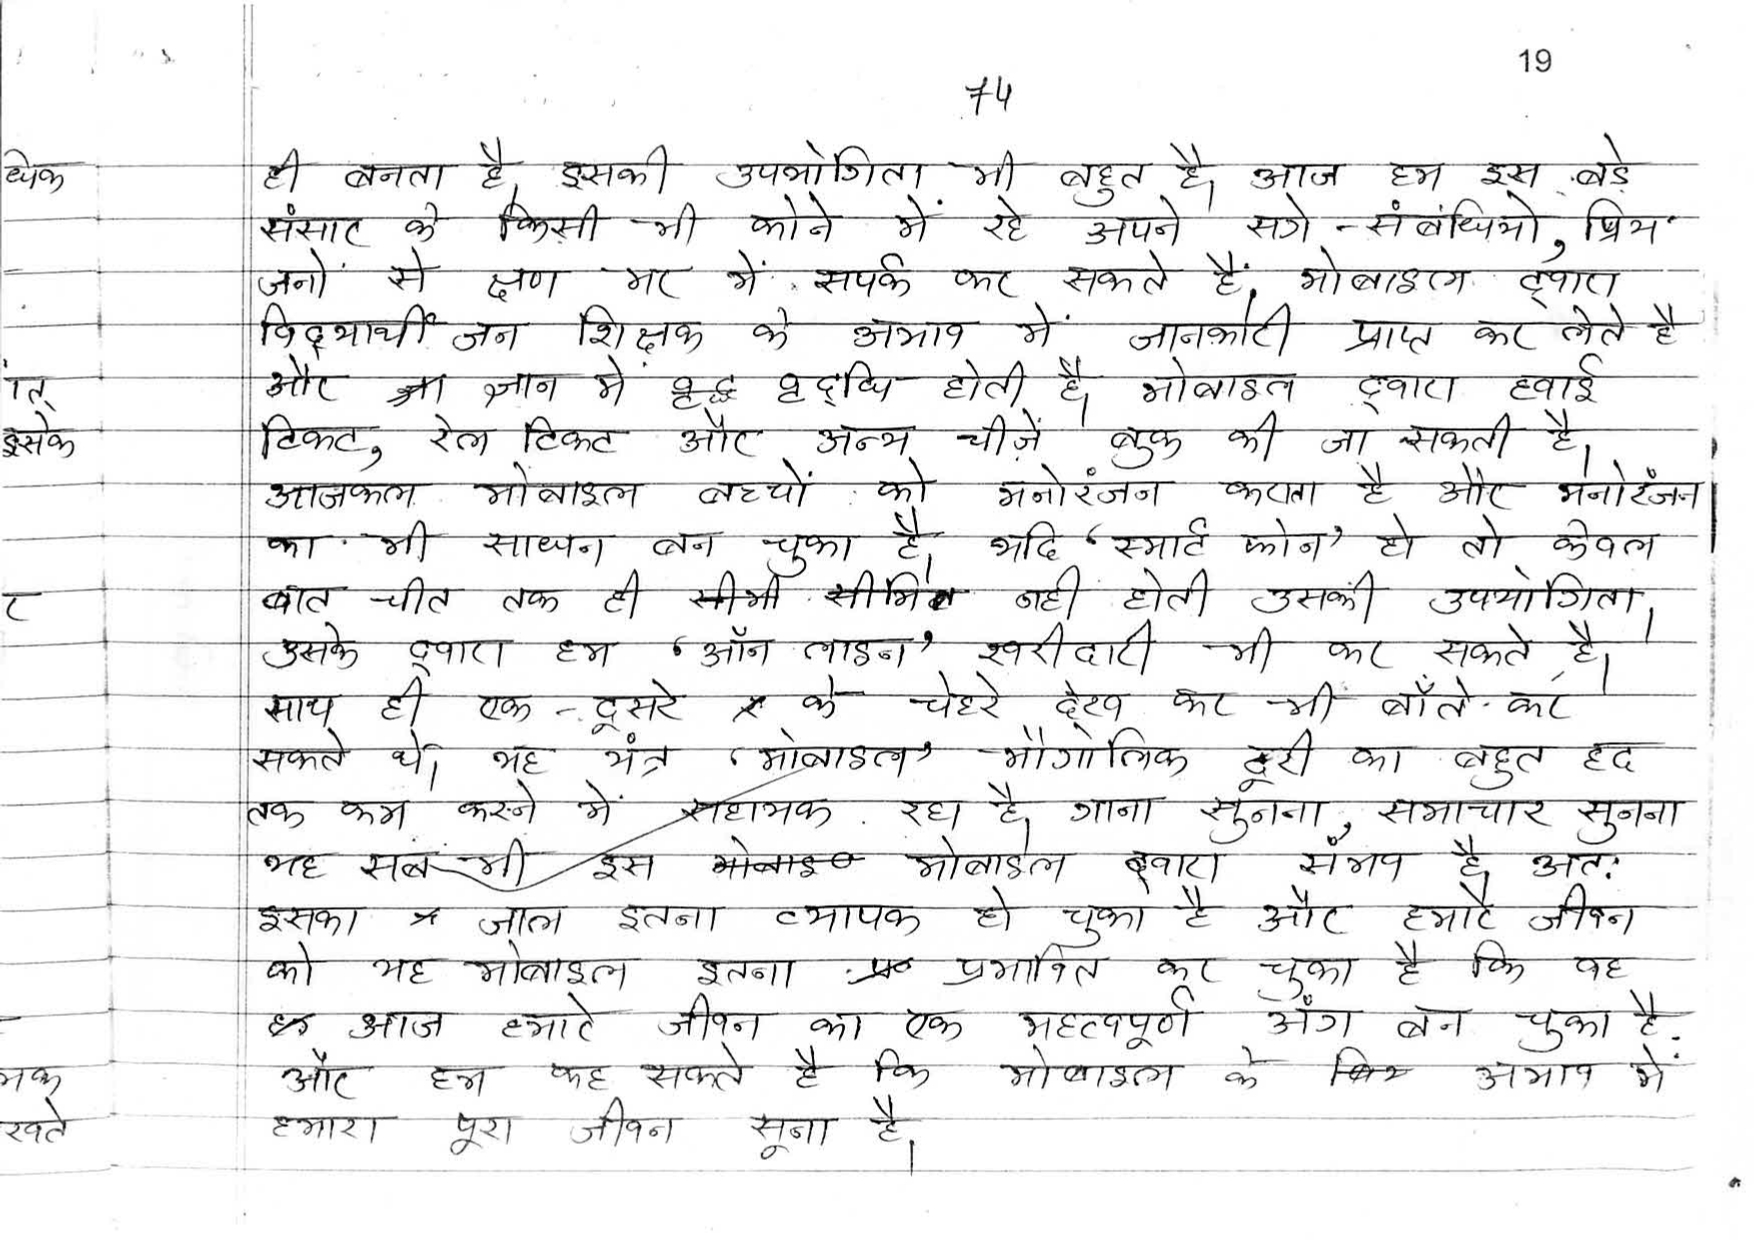 19
74
ही बनता है। इसकी उपयोगिता भी बहुत है। आज हम इस बड़े
संसार के किसी भी कोने में रहे अपने सगे-संबंधियो, प्रिय
जनों से क्षण भर में सपर्क कर सकते हैं। मोबाइल द्वारा
विद्यार्थी जन शिक्षक के अभाव में जानकारी प्राप्त कर लेते है
और ज्ञान मे वृद्धि होती है। मोबाइल द्वारा हवाई
टिकट, रेल टिकट और अन्य चीज़ें बुक की जा सकती है।
आजकल मोबाइल बच्चों को मनोरंजन कराता है और मनोरंजन
का भी साधन बन चुका है। यदि 'स्मार्ट फोन' हो तो केवल
बात चीत तक ही सीमित नही होती उसकी उपयोगिता।
उसके द्वारा हम 'ऑन लाइन' खरीदारी भी कर सकते है।
साथ ही एक-दूसरे के चेहरे देख कर भी बाँते कर
सकते थे। यह यंत्र 'मोबाइल' भौगोलिक दूरी का बहुत हद
तक कम करने में सहायक रहा है। गाना सुनना, समाचार सुनना
यह सब भी इस मोबाइल द्वारा संभव है। अतः
इसका जाल इतना व्यापक हो चुका है और हमारे जीवन
को यह मोबाइल इतना प्रभावित कर चुका है कि वह
आज हमारे जीवन का एक महत्वपूर्ण अंग बन चुका है।
और हम कह सकते है कि मोबाइल के अभाव में
हमारा पूरा जीवन सूना है।
ध्येक
इसके
र
यक
खते